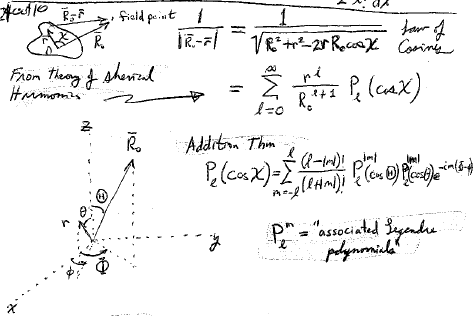 R̄₀-r̄ field point
r χ R̄₀
1/|R̄₀-r̄| = 1/√(R₀²+r²-2rR₀cosχ) Law of Cosines
From theory of sherical Harmonics = ∑_{l=0}^{∞} r^l/R₀^{l+1} P_l(cosχ)
z
R̄₀
Addition Thm
P_l(cosχ)=∑_{m=-l}^{l} (l-|m|)!/(l+|m|)! P_l^{|m|}(cosΘ)P_l^{|m|}(cosθ)e^{-im(Φ-ϕ)}
r θ Θ
y
P_l^m = "associated Legendre polynomials"
ϕ Φ
x